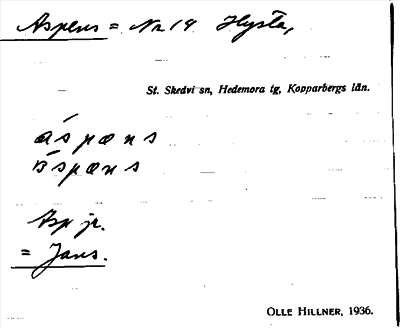 Aspens = Nr 19 Hysta,
St. Skedvi sn, Hedemora tg, Kopparbergs län.
áspæns
ɒ́spæns
Asp jr.
= Jans.
OLLE HILLNER, 1936.